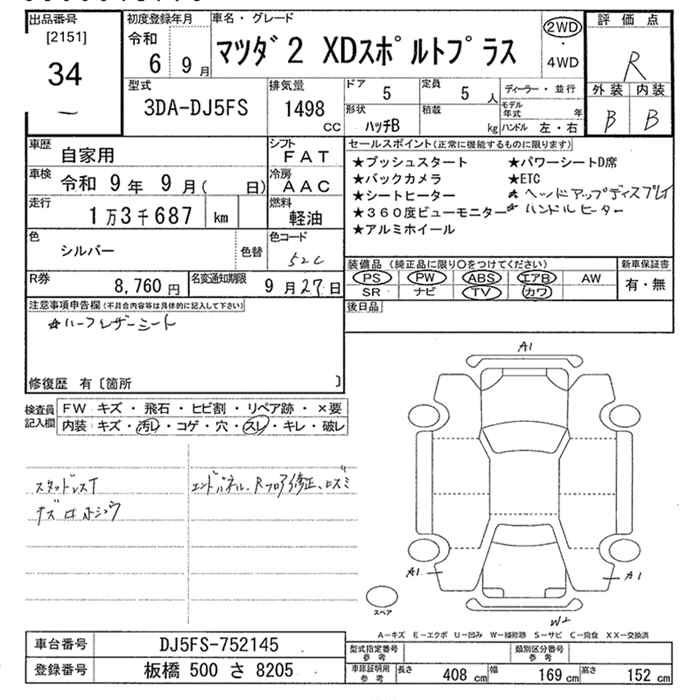 出品番号
[2151]
34
初度登録年月
令和
6 9月
車名・グレード
マツダ2 XDスポルトプラス
2WD
・
4WD
評価点
R
外装 内装
B B
型式
3DA-DJ5FS
排気量
1498
CC
ドア
5
定員
5人
形状
ハッチB
積載
kg
ディーラー・並行
モデル年式 年
ハンドル 左・右
車歴
自家用
シフト
FAT
車検
令和 9年 9月( 日)
冷房
AAC
走行
1万3千687 km
燃料
軽油
色
シルバー
色替
色コード
52C
R券
8,760円
名変通知期限
9月27日
セールスポイント(正常に機能するものに限ります)
★プッシュスタート ★パワーシートD席
★バックカメラ ★ETC
★シートヒーター ★ヘッドアップディスプレイ
★360度ビューモニター ★ハンドルヒーター
★アルミホイール
装備品(純正品に限り○をつけてください)
PS PW ABS エアB AW
SR ナビ TV カワ
新車保証書
有・無
後日品
注意事項申告欄(不具合内容等は具体的に記入して下さい)
★ハーフレザーシート
修復歴 有〔箇所 〕
検査員記入欄
FW キズ・飛石・ヒビ割・リペア跡・×要
内装 キズ・汚レ・コゲ・穴・スレ・キレ・破レ
スタッドレスT
エンドパネル、Rフロア修正、ユズミ
A1
A1
A1
W2
スペア
A―キズ E―エクボ U―凹み W―補修跡 S―サビ C―腐食 XX―交換済
車台番号
DJ5FS-752145
登録番号
板橋 500 さ 8205
型式指定番号
参考
類別区分番号
参考
車庫証明用
参考
長さ 408 cm 幅 169 cm 高さ 152 cm